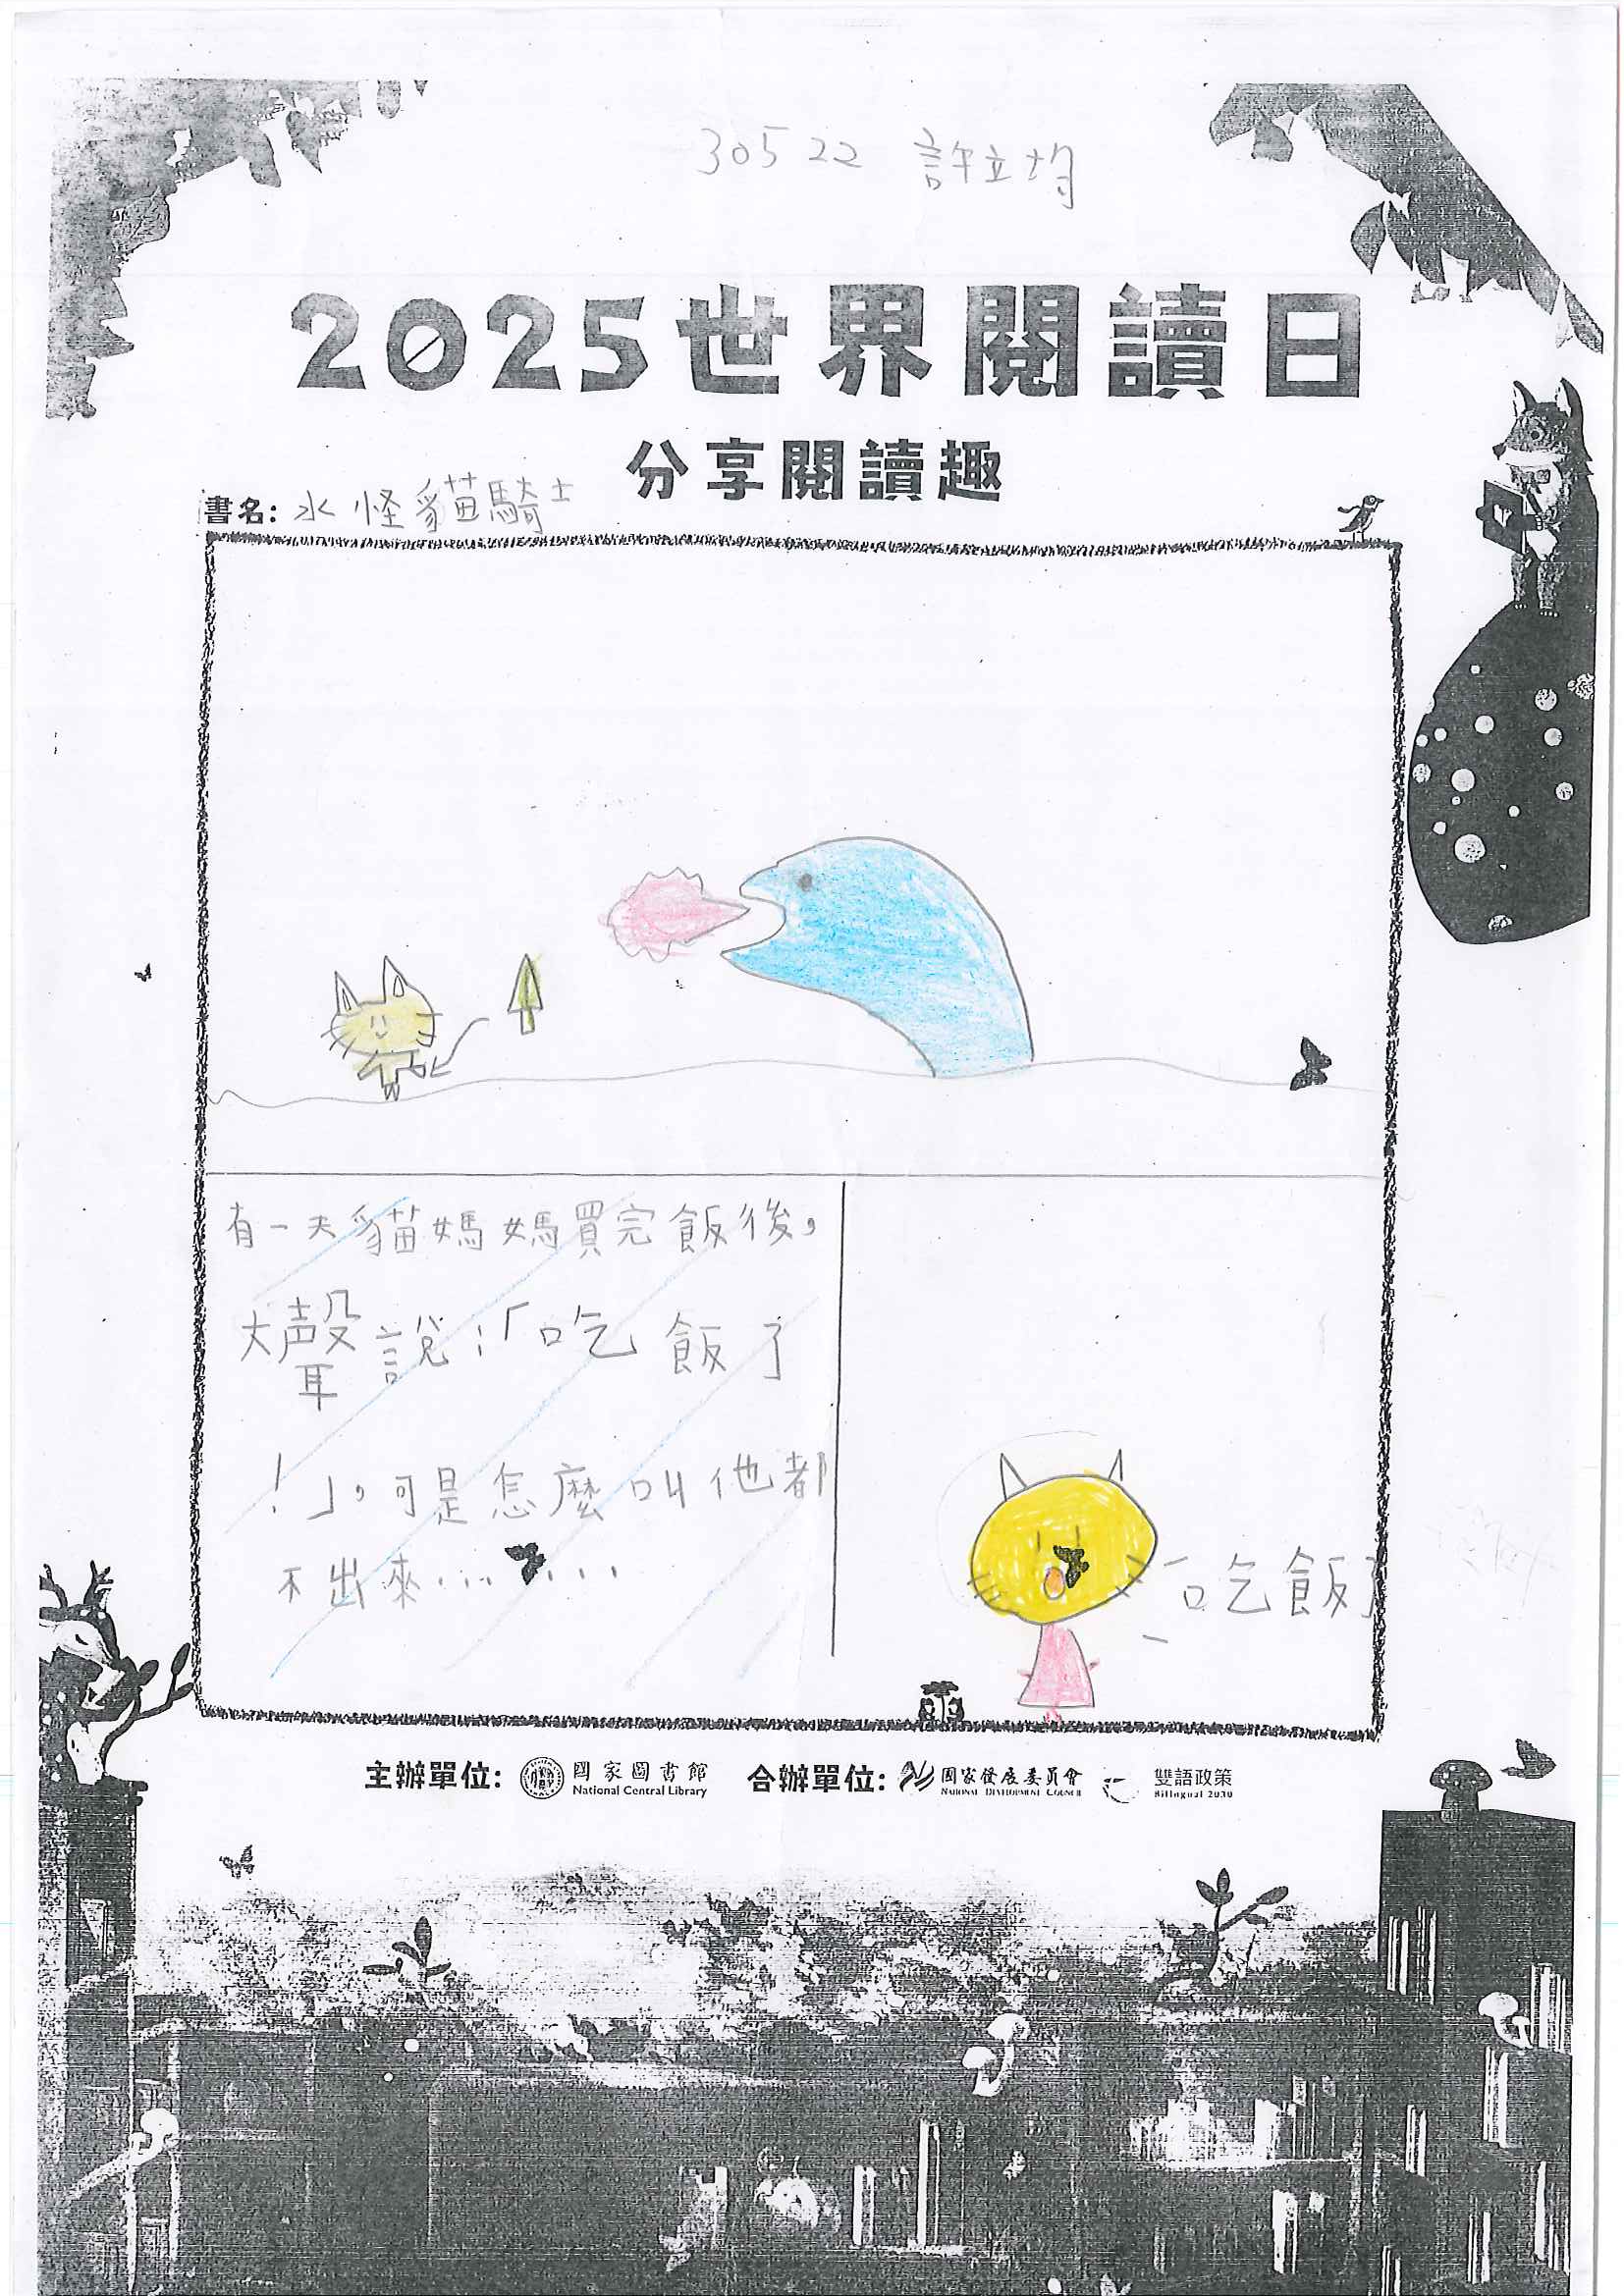 30522 許立均
2025世界閱讀日
分享閱讀趣
書名: 水怪貓騎士
有一天貓媽媽買完飯後,
大聲說:「吃飯了
!」,可是怎麼叫他都
不出來......
「吃飯了
主辦單位: 國家圖書館 National Central Library 合辦單位: 國家發展委員會 NATIONAL DEVELOPMENT COUNCIL 雙語政策 Bilingual 2030